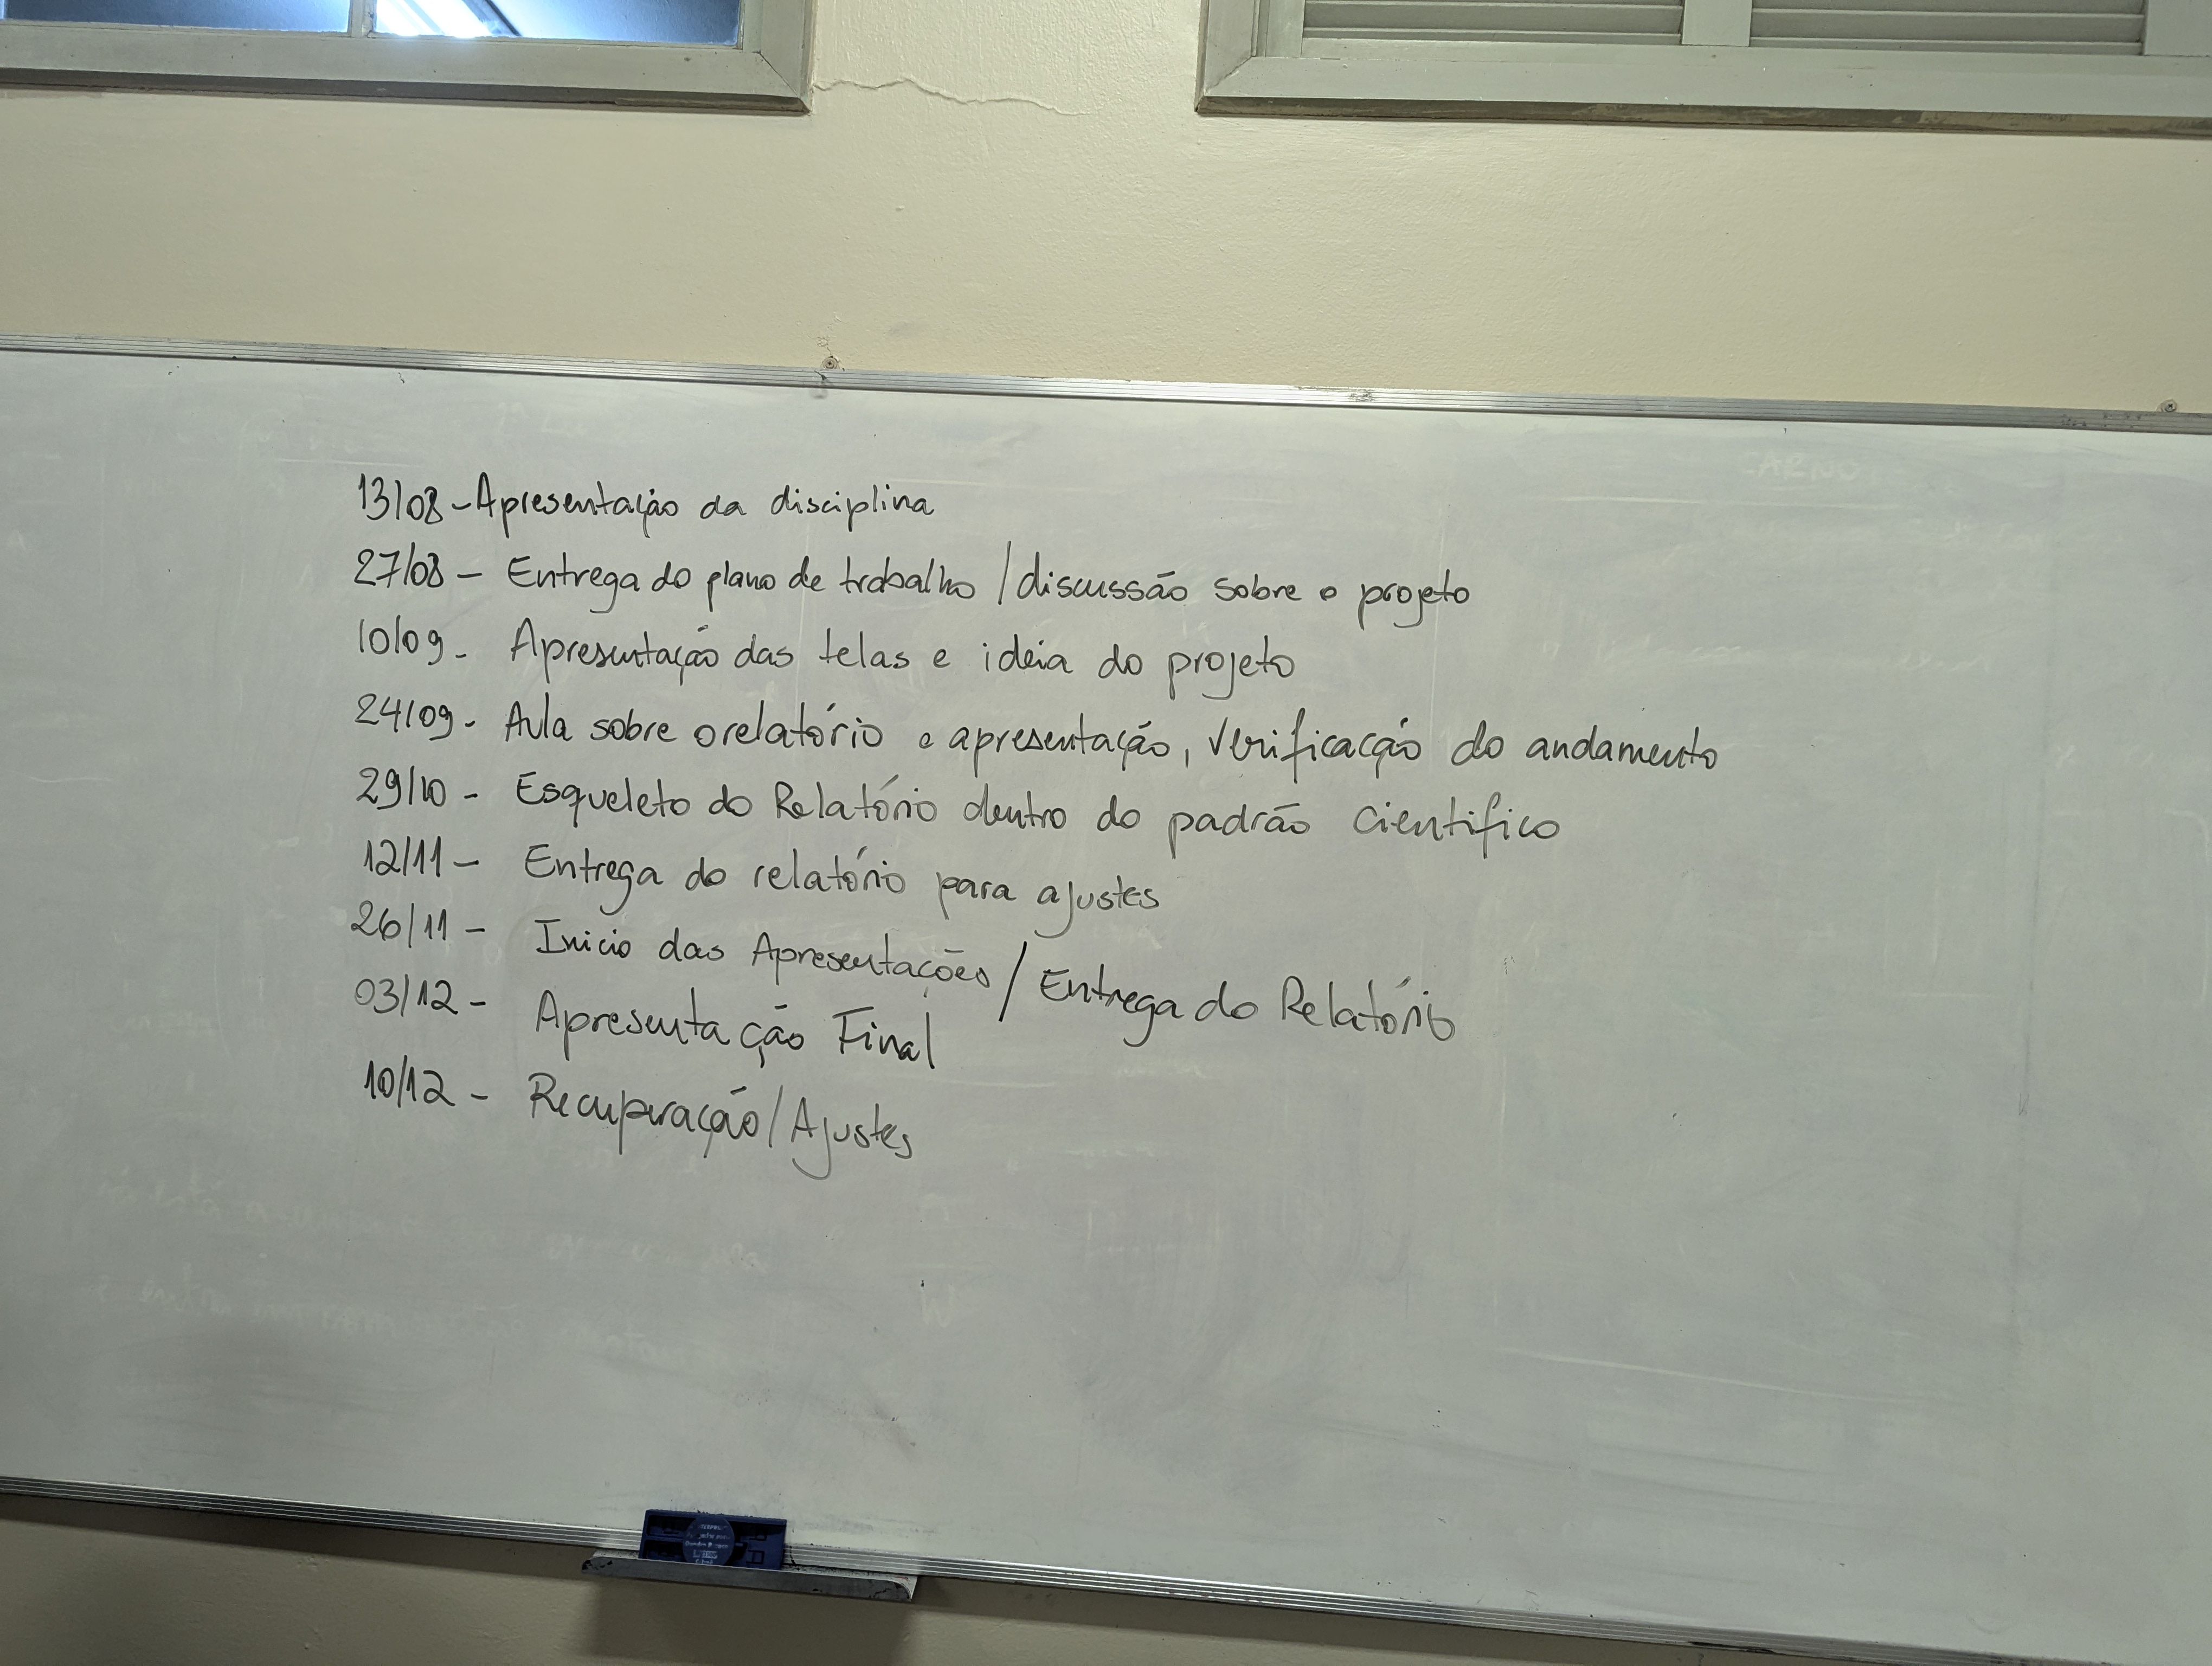 13/08 - Apresentação da disciplina
27/08 - Entrega do plano de trabalho / discussão sobre o projeto
10/09 - Apresentação das telas e ideia do projeto
24/09 - Aula sobre o relatório e apresentação, verificação do andamento
29/10 - Esqueleto do Relatório dentro do padrão cientifico
12/11 - Entrega do relatório para ajustes
26/11 - Inicio das Apresentações / Entrega do Relatório
03/12 - Apresentação Final
10/12 - Recuperação / Ajustes